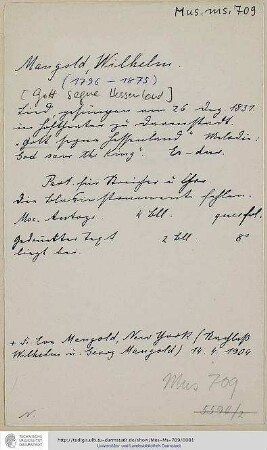 Mus. ms. 709
Mangold, Wilhelm.
(1796 – 1875)
[Gott segne Hessenland]
Lied gesungen von 26 Dez 1831
im Hoftheater zu Darmstadt.
"Gott segne Hessenland" Melodie:
God save the King. Es-dur.
Part. für Streicher u. Chor
Die Blasinstrumente fehlen.
Msc. Autogr. 4 Bll. querfol.
gedruckter Text 2 Bll 8°
liegt bei.
Mangold, New York (Nachlaß
Wilhelm u. Georg Mangold) 14. 4. 1904
Mus 709
5596/2
N.
TECHNISCHE
UNIVERSITÄT
DARMSTADT
http://tudigit.ulb.tu-darmstadt.de/show/Mus-Ms-709/0001
Universitäts- und Landesbibliothek Darmstadt